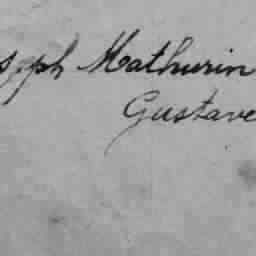 seph Mathurin
Gustave